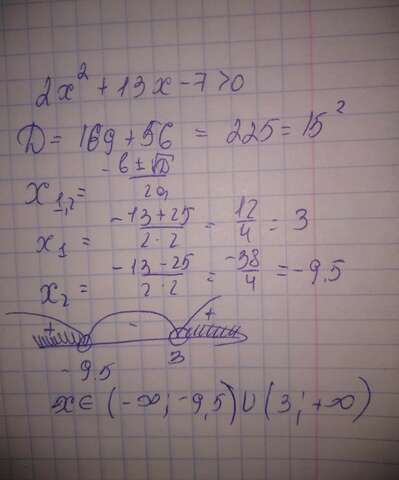 2x² + 13x - 7 > 0
D = 169 + 56 = 225 = 15²
x₁,₂ = (-b ± √D) / 2a
x₁ = (-13 + 25) / (2·2) = 12/4 = 3
x₂ = (-13 - 25) / (2·2) = -38/4 = -9.5
+ - +
-9.5 3
x ∈ (-∞; -9,5) ∪ (3; +∞)